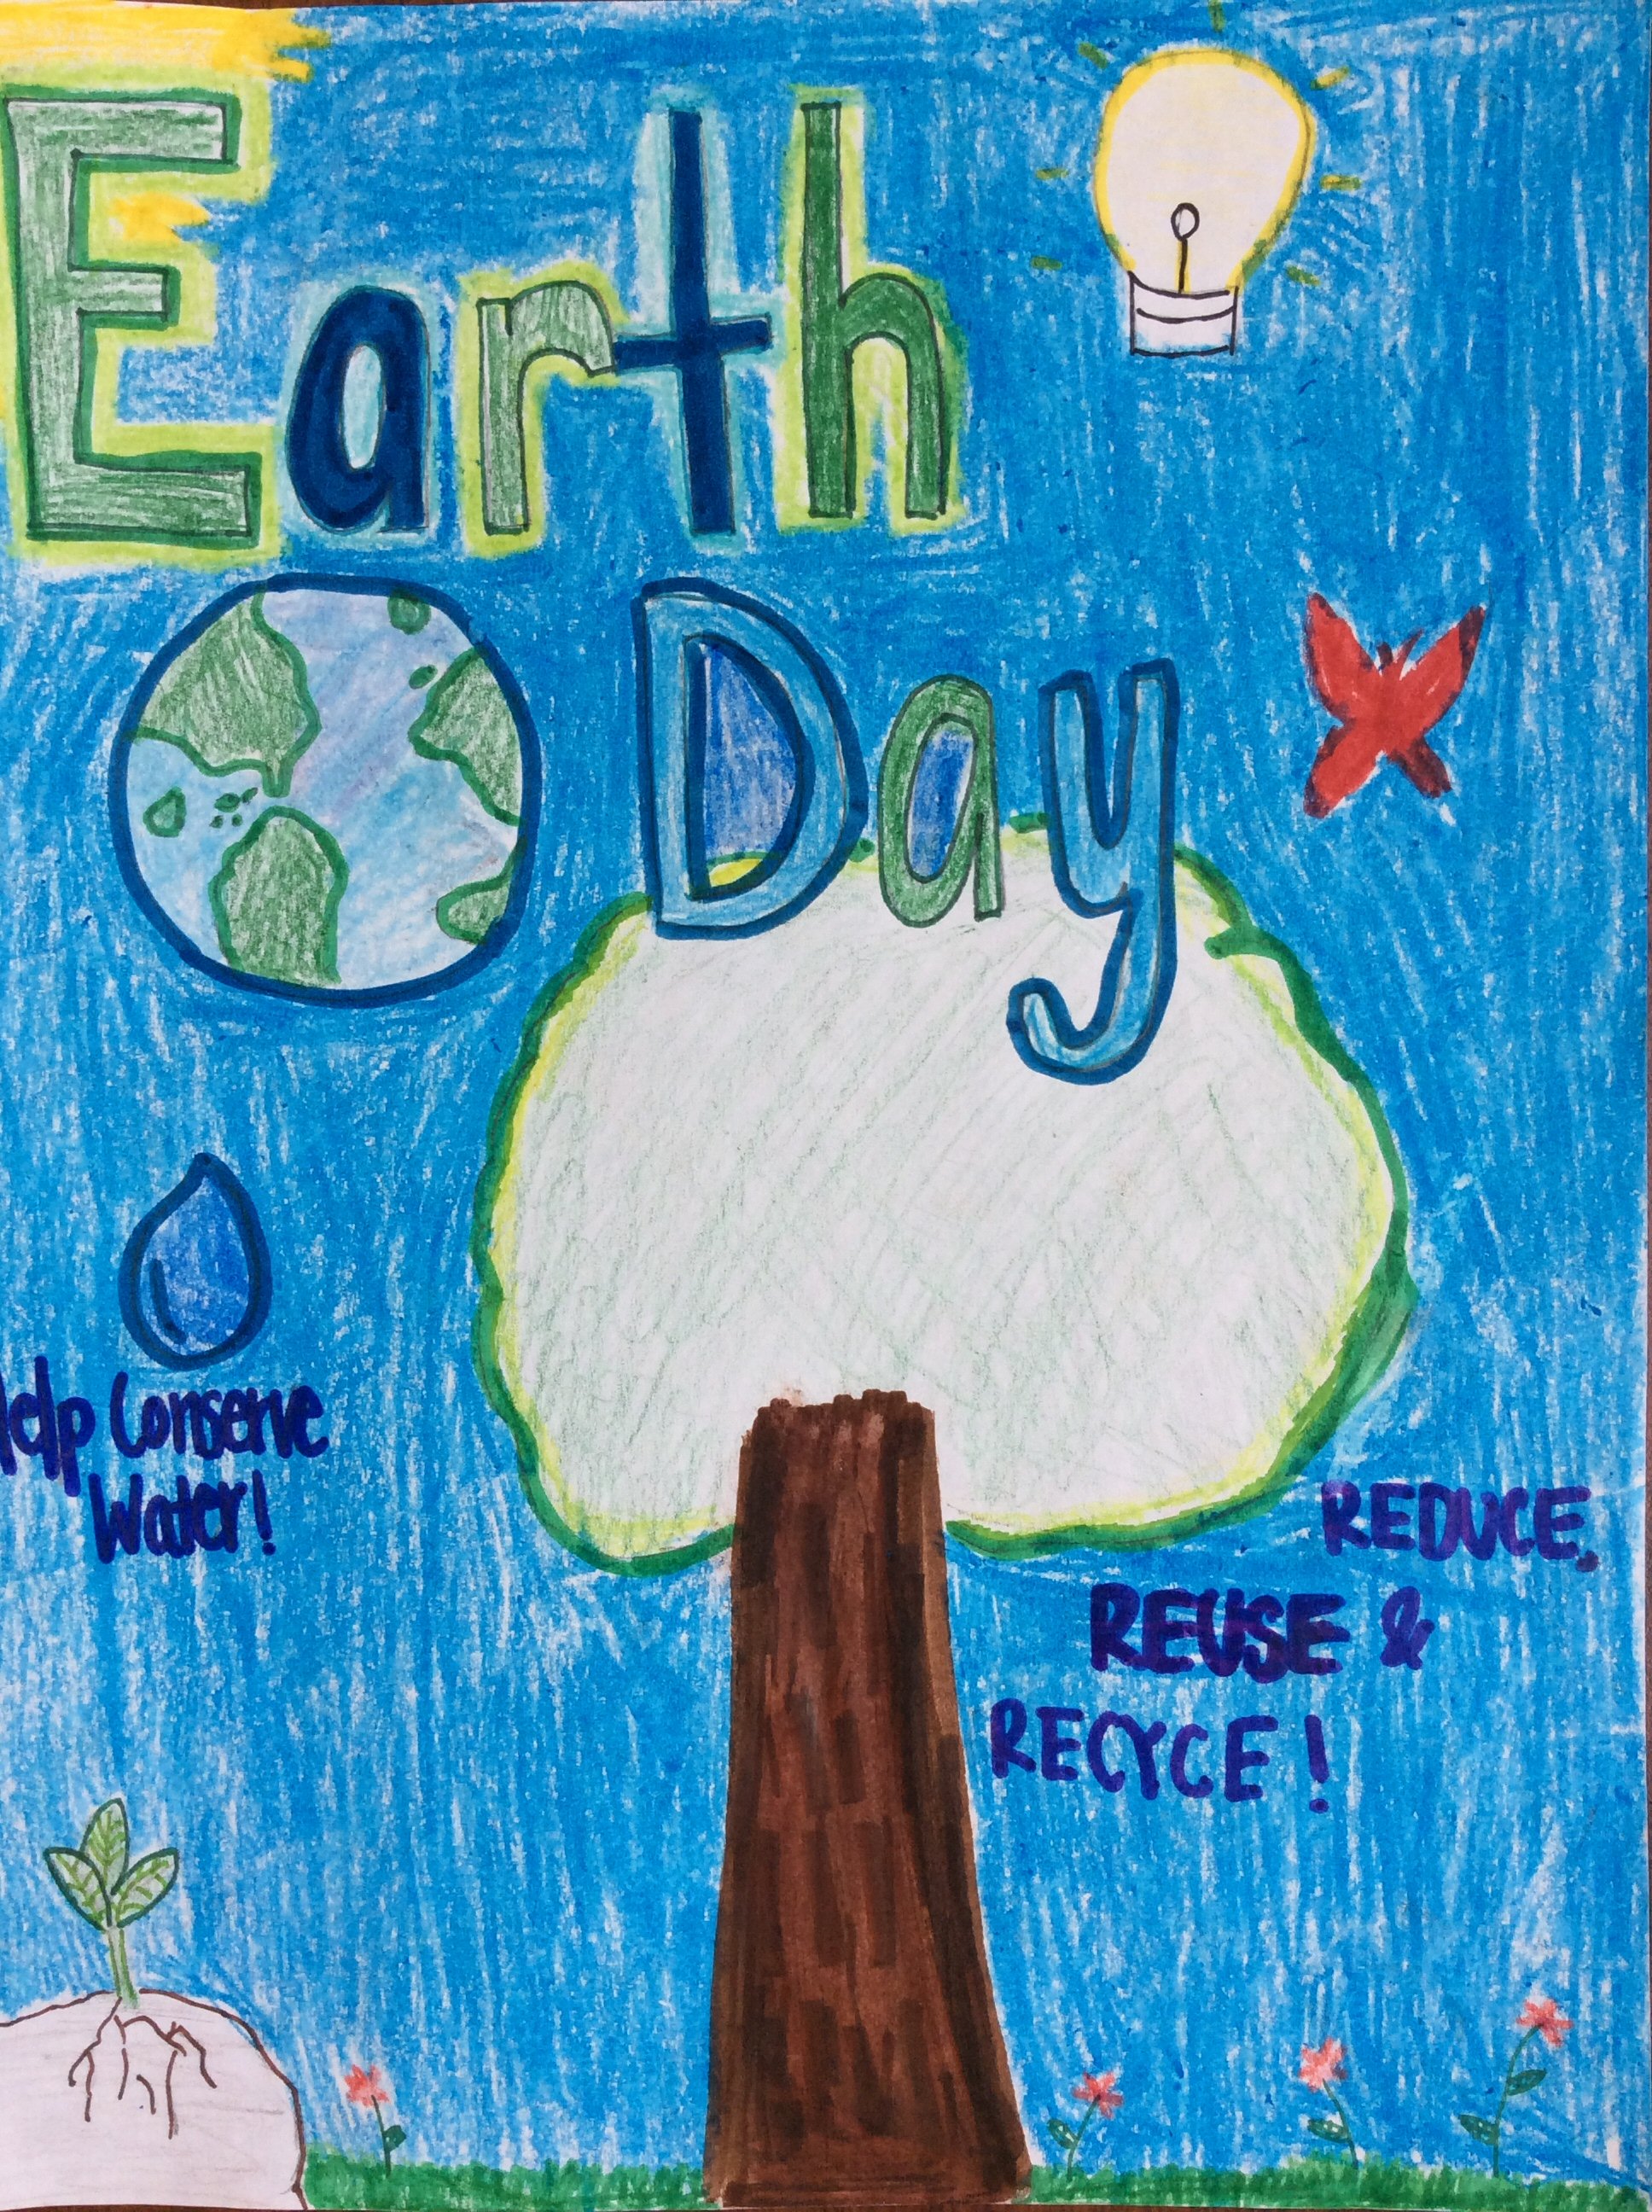 Earth
Day
Help Conserve
Water!
REDUCE,
REUSE &
RECYCE!